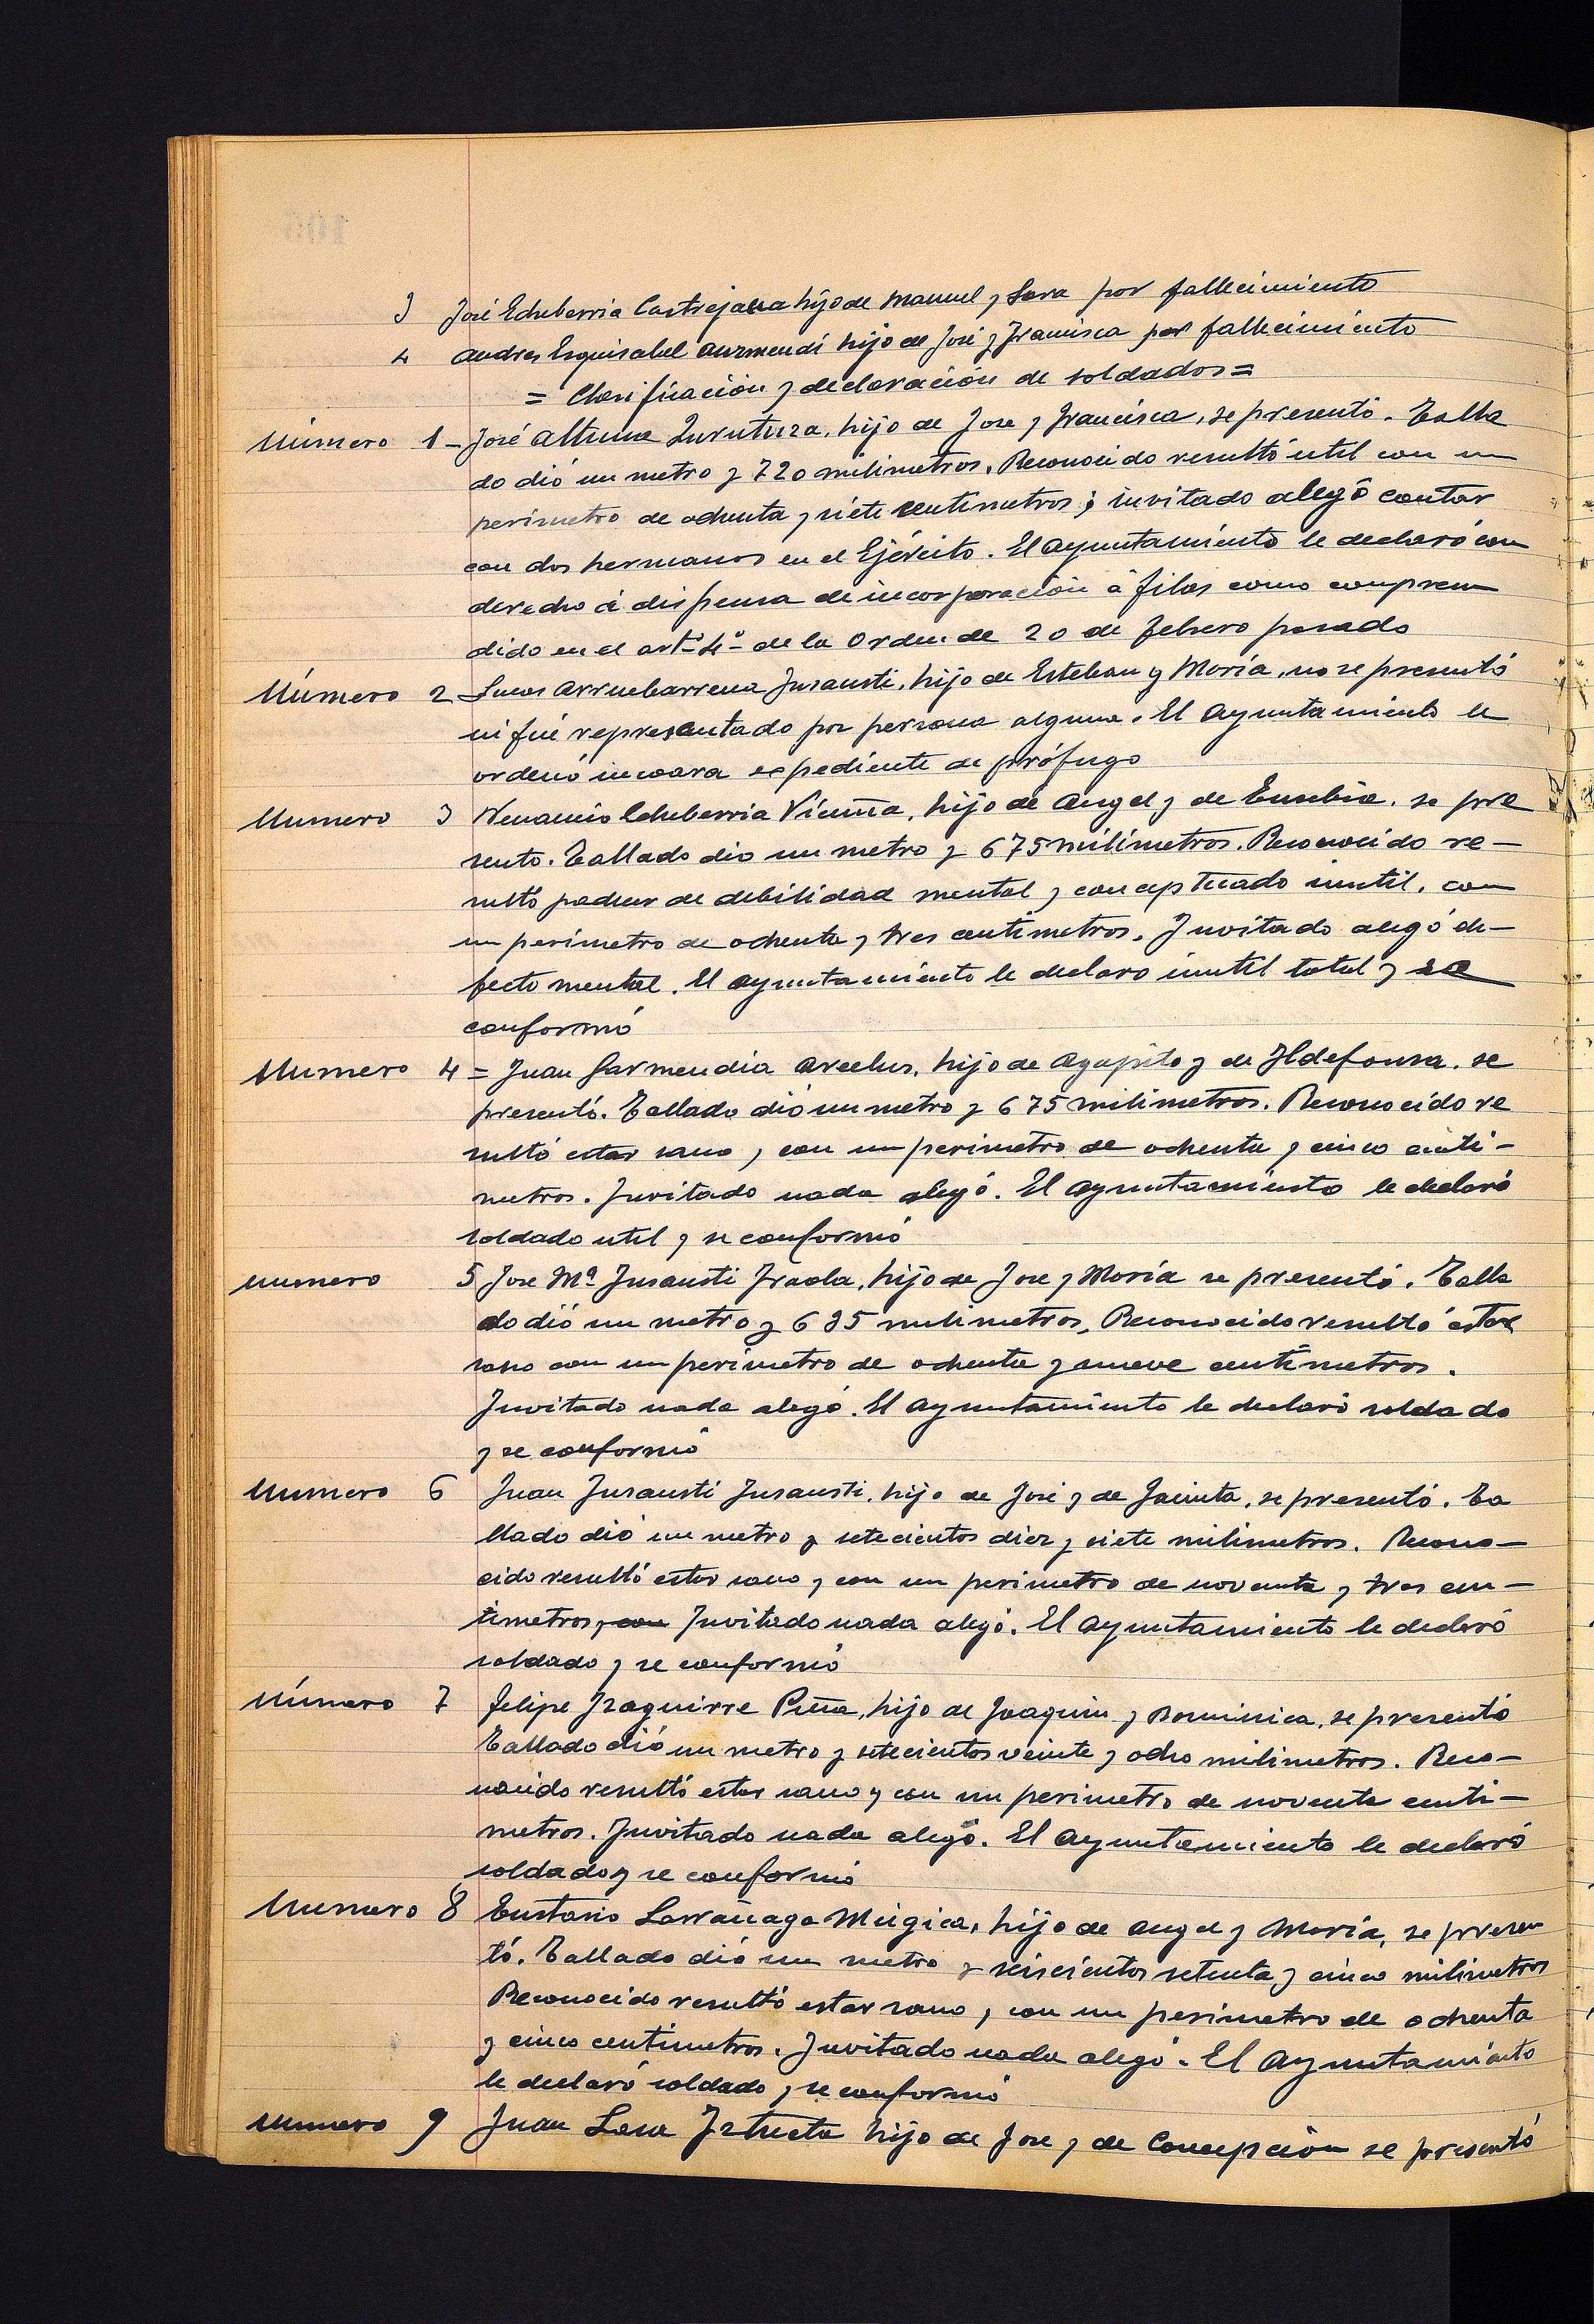 3 José Echeberria Castrejana hijo de Manuel y Sara por fallecimiento
4 Andres Esquisabel Aurmendi hijo de José y Francisca por fallecimiento
= Clasificación y declaración de soldados =
Número 1 - José Altuna Zurutuza, hijo de Jose y Francisca, se presentó. Talla
do dió un metro y 720 milimetros. Reconocido resultó util con un
perimetro de ochenta y siete centimetros; invitado alegó contar
con dos hermanos en el Ejército. El Ayuntamiento le declaró con
derecho á dispensa de incorporación á filas como compren
dido en el artº 4º de la Orden de 20 de Febrero pasado
Número 2 Lucas Arruebarrena Insausti, hijo de Esteban y María, no se presentó
ni fué representado por persona alguna. El Ayuntamiento le
ordenó incoara expediente de prófugo
Numero 3 Venancio Echeberria Vicuña, hijo de Angel y de Eusebia, se pre
sento. Tallado dio un metro y 675 milímetros. Reconocido re-
sultó padecer de debilidad mental y conceptuado inutil, con
un perímetro de ochenta y tres centimetros. Invitado alegó de-
fecto mental. El Ayuntamiento le declaro inutil total y se
conformó
Numero 4 = Juan Garmendia Arcelus, hijo de Agapito y de Ildefonsa, se
presentó. Tallado dió un metro y 675 milimetros. Reconocido re
sultó estar sano y con un perimetro de ochenta y cinco centi-
metros. Invitado nada alegó. El Ayuntamiento le declaró
soldado util y se conformó
Numero 5 Jose Mª Insausti Iraola, hijo de Jose y María se presentó. Talla
do dió un metro y 635 milimetros, Reconocido resultó estar
sano con un perimetro de ochenta y nueve centimetros.
Invitado nada alegó. El Ayuntamiento le declaró soldado
y se conformó
Numero 6 Juan Insausti Insausti, hijo de José y de Jacinta, se presentó. Ta
llado dió un metro y setecientos diez y siete milimetros. Recono-
cido resultó estar sano y con un perimetro de noventa y tres cen-
timetros y con Invitado nada alegó. El Ayuntamiento le declaró
soldado y se conformó
Número 7 Felipe Izaguirre Piña, hijo de Joaquin y Dominica, se presentó
Tallado dió un metro y setecientos veinte y ocho milimetros. Reco-
nocido resultó estar sano y con un perimetro de noventa centi-
metros. Invitado nada alegó. El Ayuntamiento le declaró
soldado y se conformó
Numero 8 Eustasio Larrañaga Múgica, hijo de Angel y María, se presen
tó. Tallado dió un metro y seiscientos setenta y cinco milimetros
Reconocido resultó estar sano y con un perimetro de ochenta
y cinco centimetros. Invitado nada alegó. El Ayuntamiento
le declaró soldado y se conformó
Numero 9 Juan Lasa Iztueta hijo de Jose y de Concepción se presentó